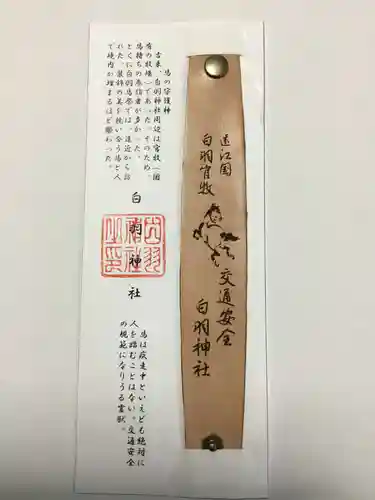 馬の守護神
古来、白羽神社周辺は官牧(国
有の牧場)であった。そのため、
馬持ちの参詣者が多かった。
とくに白羽馬祭では、遠近から訪
れた、装飾の美を競い合う馬と人
で境内が埋まるほど賑わった。
白羽神社
馬は疾走中といえども絶対に
人を踏むことはない。交通安全
の規範になりうる霊獣。
遠江国
白羽官牧
交通安全
白羽神社